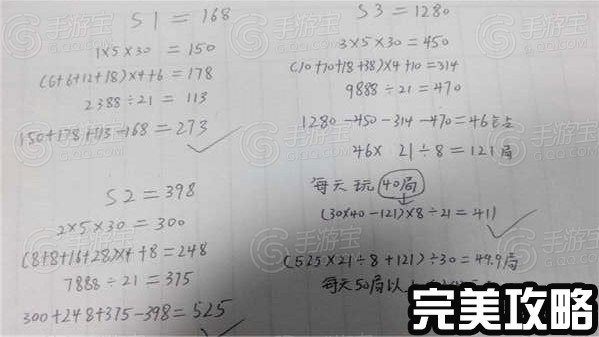 S1 = 168
1×5×30 = 150
(6+6+12+18)×4+6 = 178
2388÷21 = 113
150+178+113-168 = 273
S2 = 398
2×5×30 = 300
(8+8+16+28)×4+8 = 248
7888÷21 = 375
300+248+375-398 = 525
S3 = 1280
3×5×30 = 450
(10+10+18+38)×4+10 = 314
9888÷21 = 470
1280-450-314-470 = 46
46×21÷8 = 121局
每天玩40局
(30×40-121)×8÷21 = 411
(525×21÷8+121)÷30 = 49.9局
每天50局以上
完美攻略
手游宝